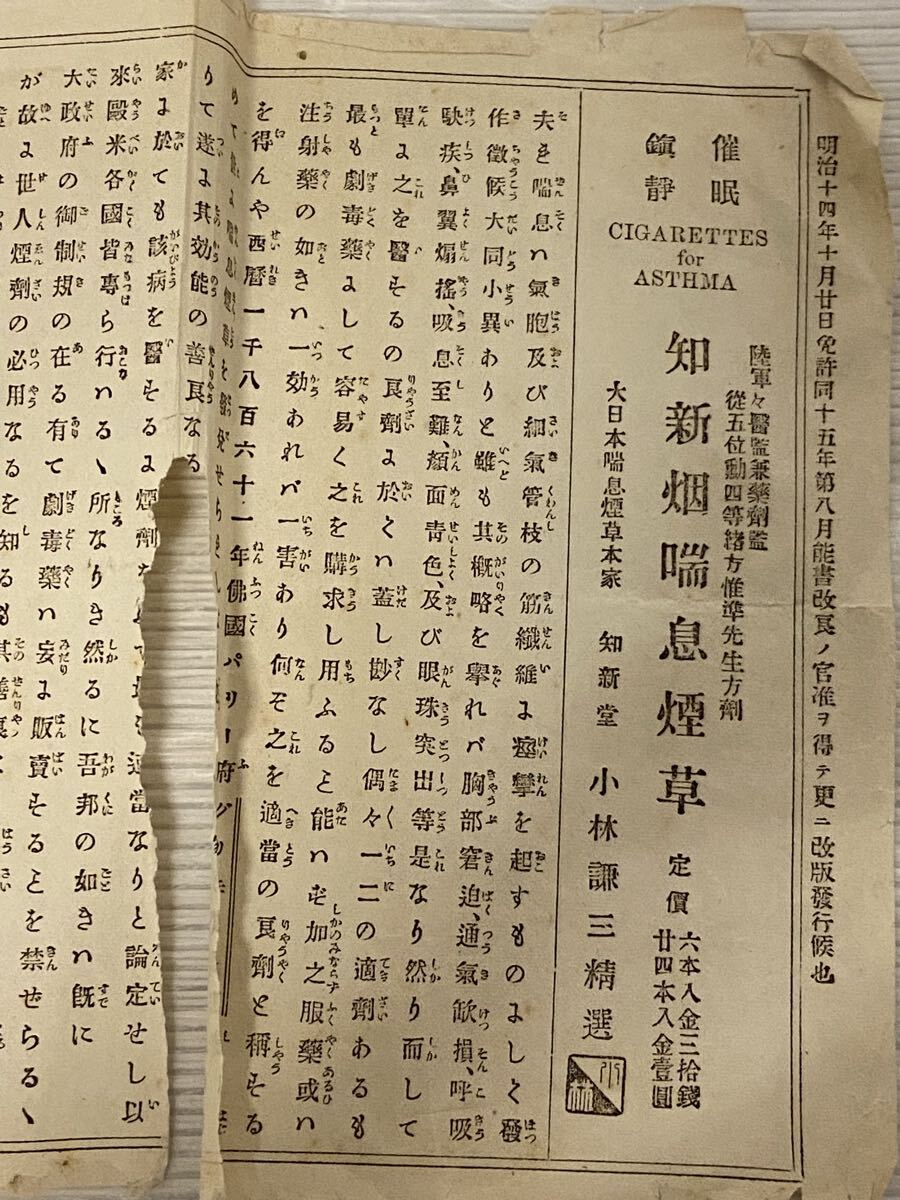 明治十四年十月廿日免許同十五年第八月能書改良ノ官准ヲ得テ更ニ改版發行候也
催眠
鎮靜
CIGARETTES
for
ASTHMA
陸軍々醫監兼藥劑監
從五位勳四等緒方惟準先生方劑
知新烟喘息煙草
定價 六本入金三拾錢
廿四本入金壹圓
大日本喘息煙草本家 知新堂 小林謙三精選
夫れ喘息ハ氣胞及び細氣管枝の筋纖維に痙攣を起すものにして發
作徵候大同小異ありと雖も其概略を擧れバ胸部窘迫、通氣缺損、呼吸
駃疾、鼻翼煽搖、吸息至難、顏面靑色、及び眼珠突出等是なり然り而して
單に之を醫するの良劑に於てハ蓋し尠なし偶々一二の適劑あるも
最も劇毒藥にして容易く之を購求し用ふると能ハず加之服藥或ハ
注射藥の如きハ一効あれバ一害あり何ぞ之を適當の良劑と稱する
を得んや西曆一千八百六十二年佛國パリー府
りて遂に其効能の善良なる
家に於ても該病を醫するに煙劑 適當なりと論定せし以
來毆米各國皆專ら行ハるゝ所なりき然るに吾邦の如きハ既に
大政府の御制規の在る有て劇毒藥ハ妄に販賣することを禁せらるゝ
が故に世人煙劑の必用なるを知るも其善良